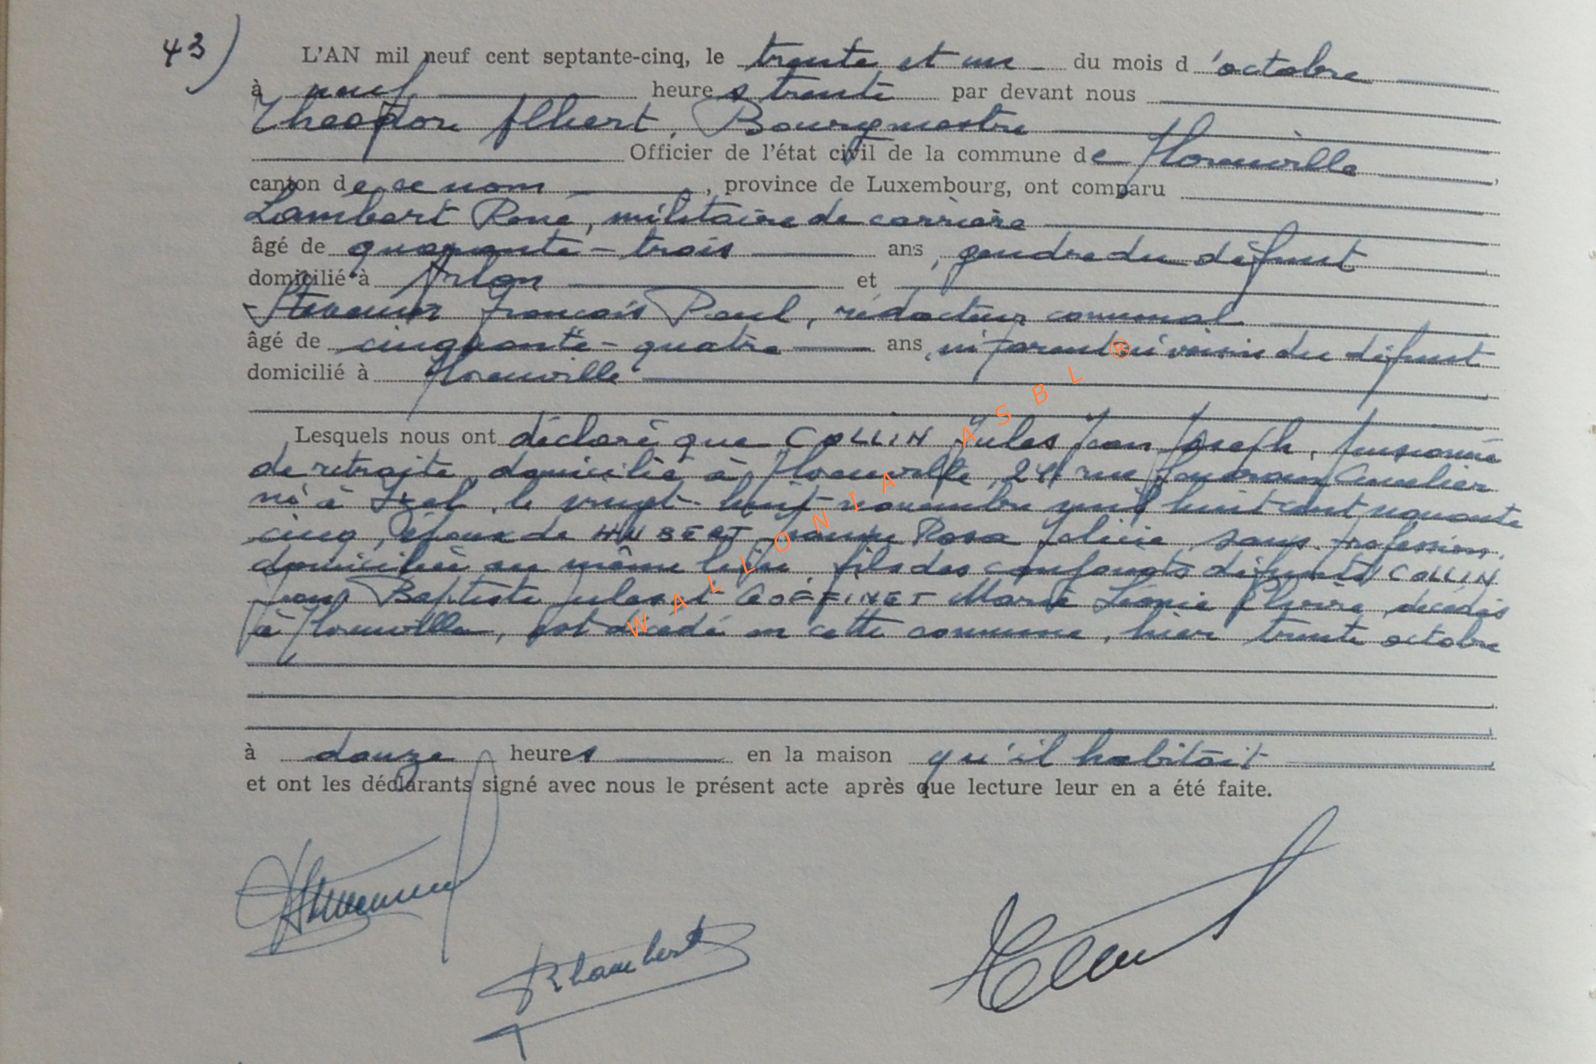 43) L'AN mil neuf cent septante-cinq, le trente et un du mois d'octobre
à neuf heures trente par devant nous
Théodore Albert, Bourgmestre
Officier de l'état civil de la commune de Florenville
canton de ce nom, province de Luxembourg, ont comparu
Lambert René, militaire de carrière
âgé de quarante-trois ans, gendre du défunt
domicilié à Arlon et
François Paul, rédacteur communal
âgé de cinquante-quatre ans, ni parent ni voisin du défunt
domicilié à Florenville
Lesquels nous ont déclaré que COLLIN Jules Jean Joseph, pensionné
de retraite, domicilié à Florenville, 24 rue
né à Izel, le vingt-huit novembre mil huit cent nonante
cinq, époux de HUBERT Rosa Félicie, sans profession,
domiciliée au même lieu, fils des conjoints défunts COLLIN
Jean Baptiste Jules et GOFFINET Marie Léonie décédés
à Florenville, est décédé en cette commune, hier trente octobre
à douze heures en la maison qu'il habitait
et ont les déclarants signé avec nous le présent acte après que lecture leur en a été faite.
RLambert
WALLONIA ASBL ®